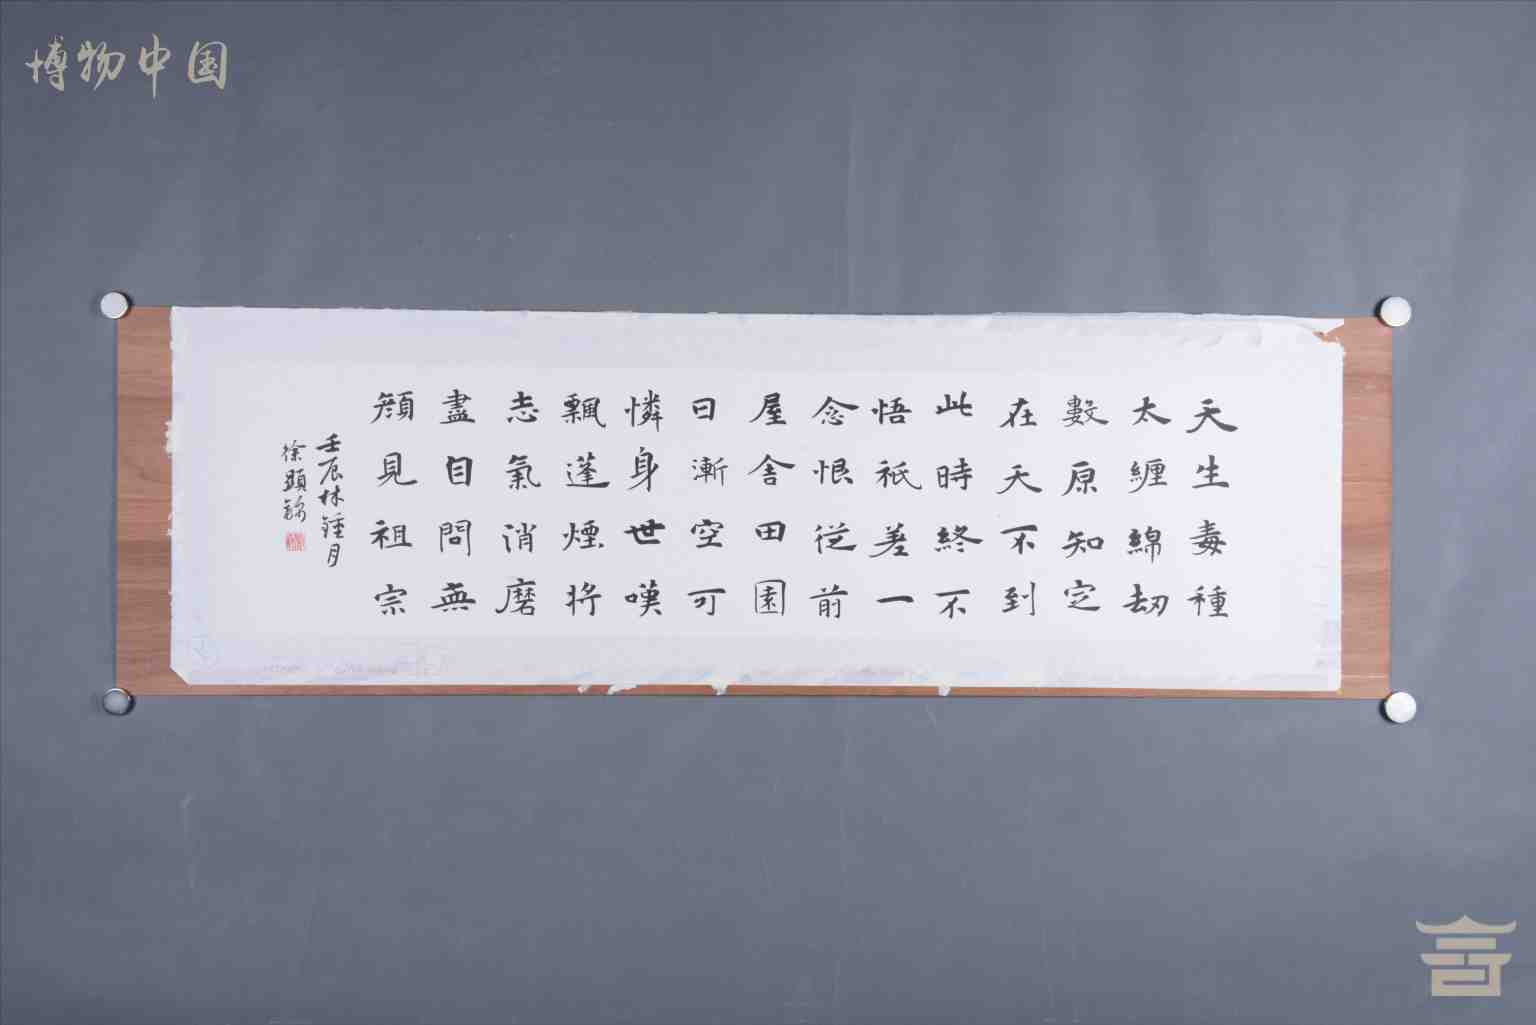 博物中国
天生毒種
太纏綿劫
數原知定
在天不到
此時終不
悟祇差一
念恨從前
屋舍田園
日漸空可
憐身世嘆
飄蓬煙將
志氣消磨
盡自問無
顏見祖宗
壬辰林鍾月
徐顯